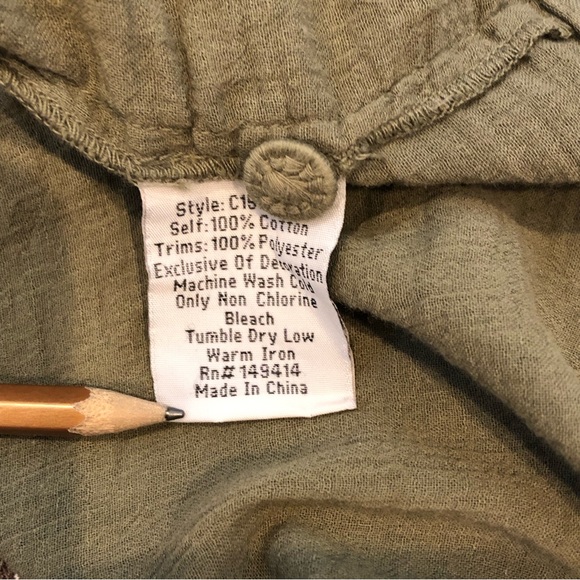 Style: C15
Self:100% Cotton
Trims:100% Polyester
Exclusive Of Decoration
Machine Wash Cold
Only Non Chlorine
Bleach
Tumble Dry Low
Warm Iron
Rn# 149414
Made In China